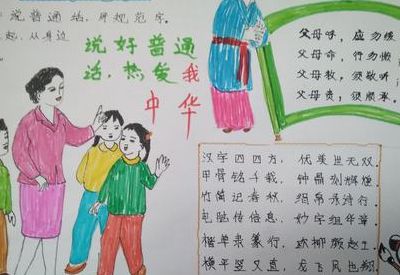 说普通话,用规范字。
起,从身边
说好普通
话,热爱我
中华
父母呼,应勿缓
父母命,行勿懒
父母教,须敬听
父母责,须顺承
汉字四四方,优美世无双
甲骨铭千载,钟鼎刻辉煌
竹简记春秋,绢帛永流行
电脑传信息,妙字组华章
楷隶篆行,欧柳颜赵
横平竖又直,龙飞凤也翔